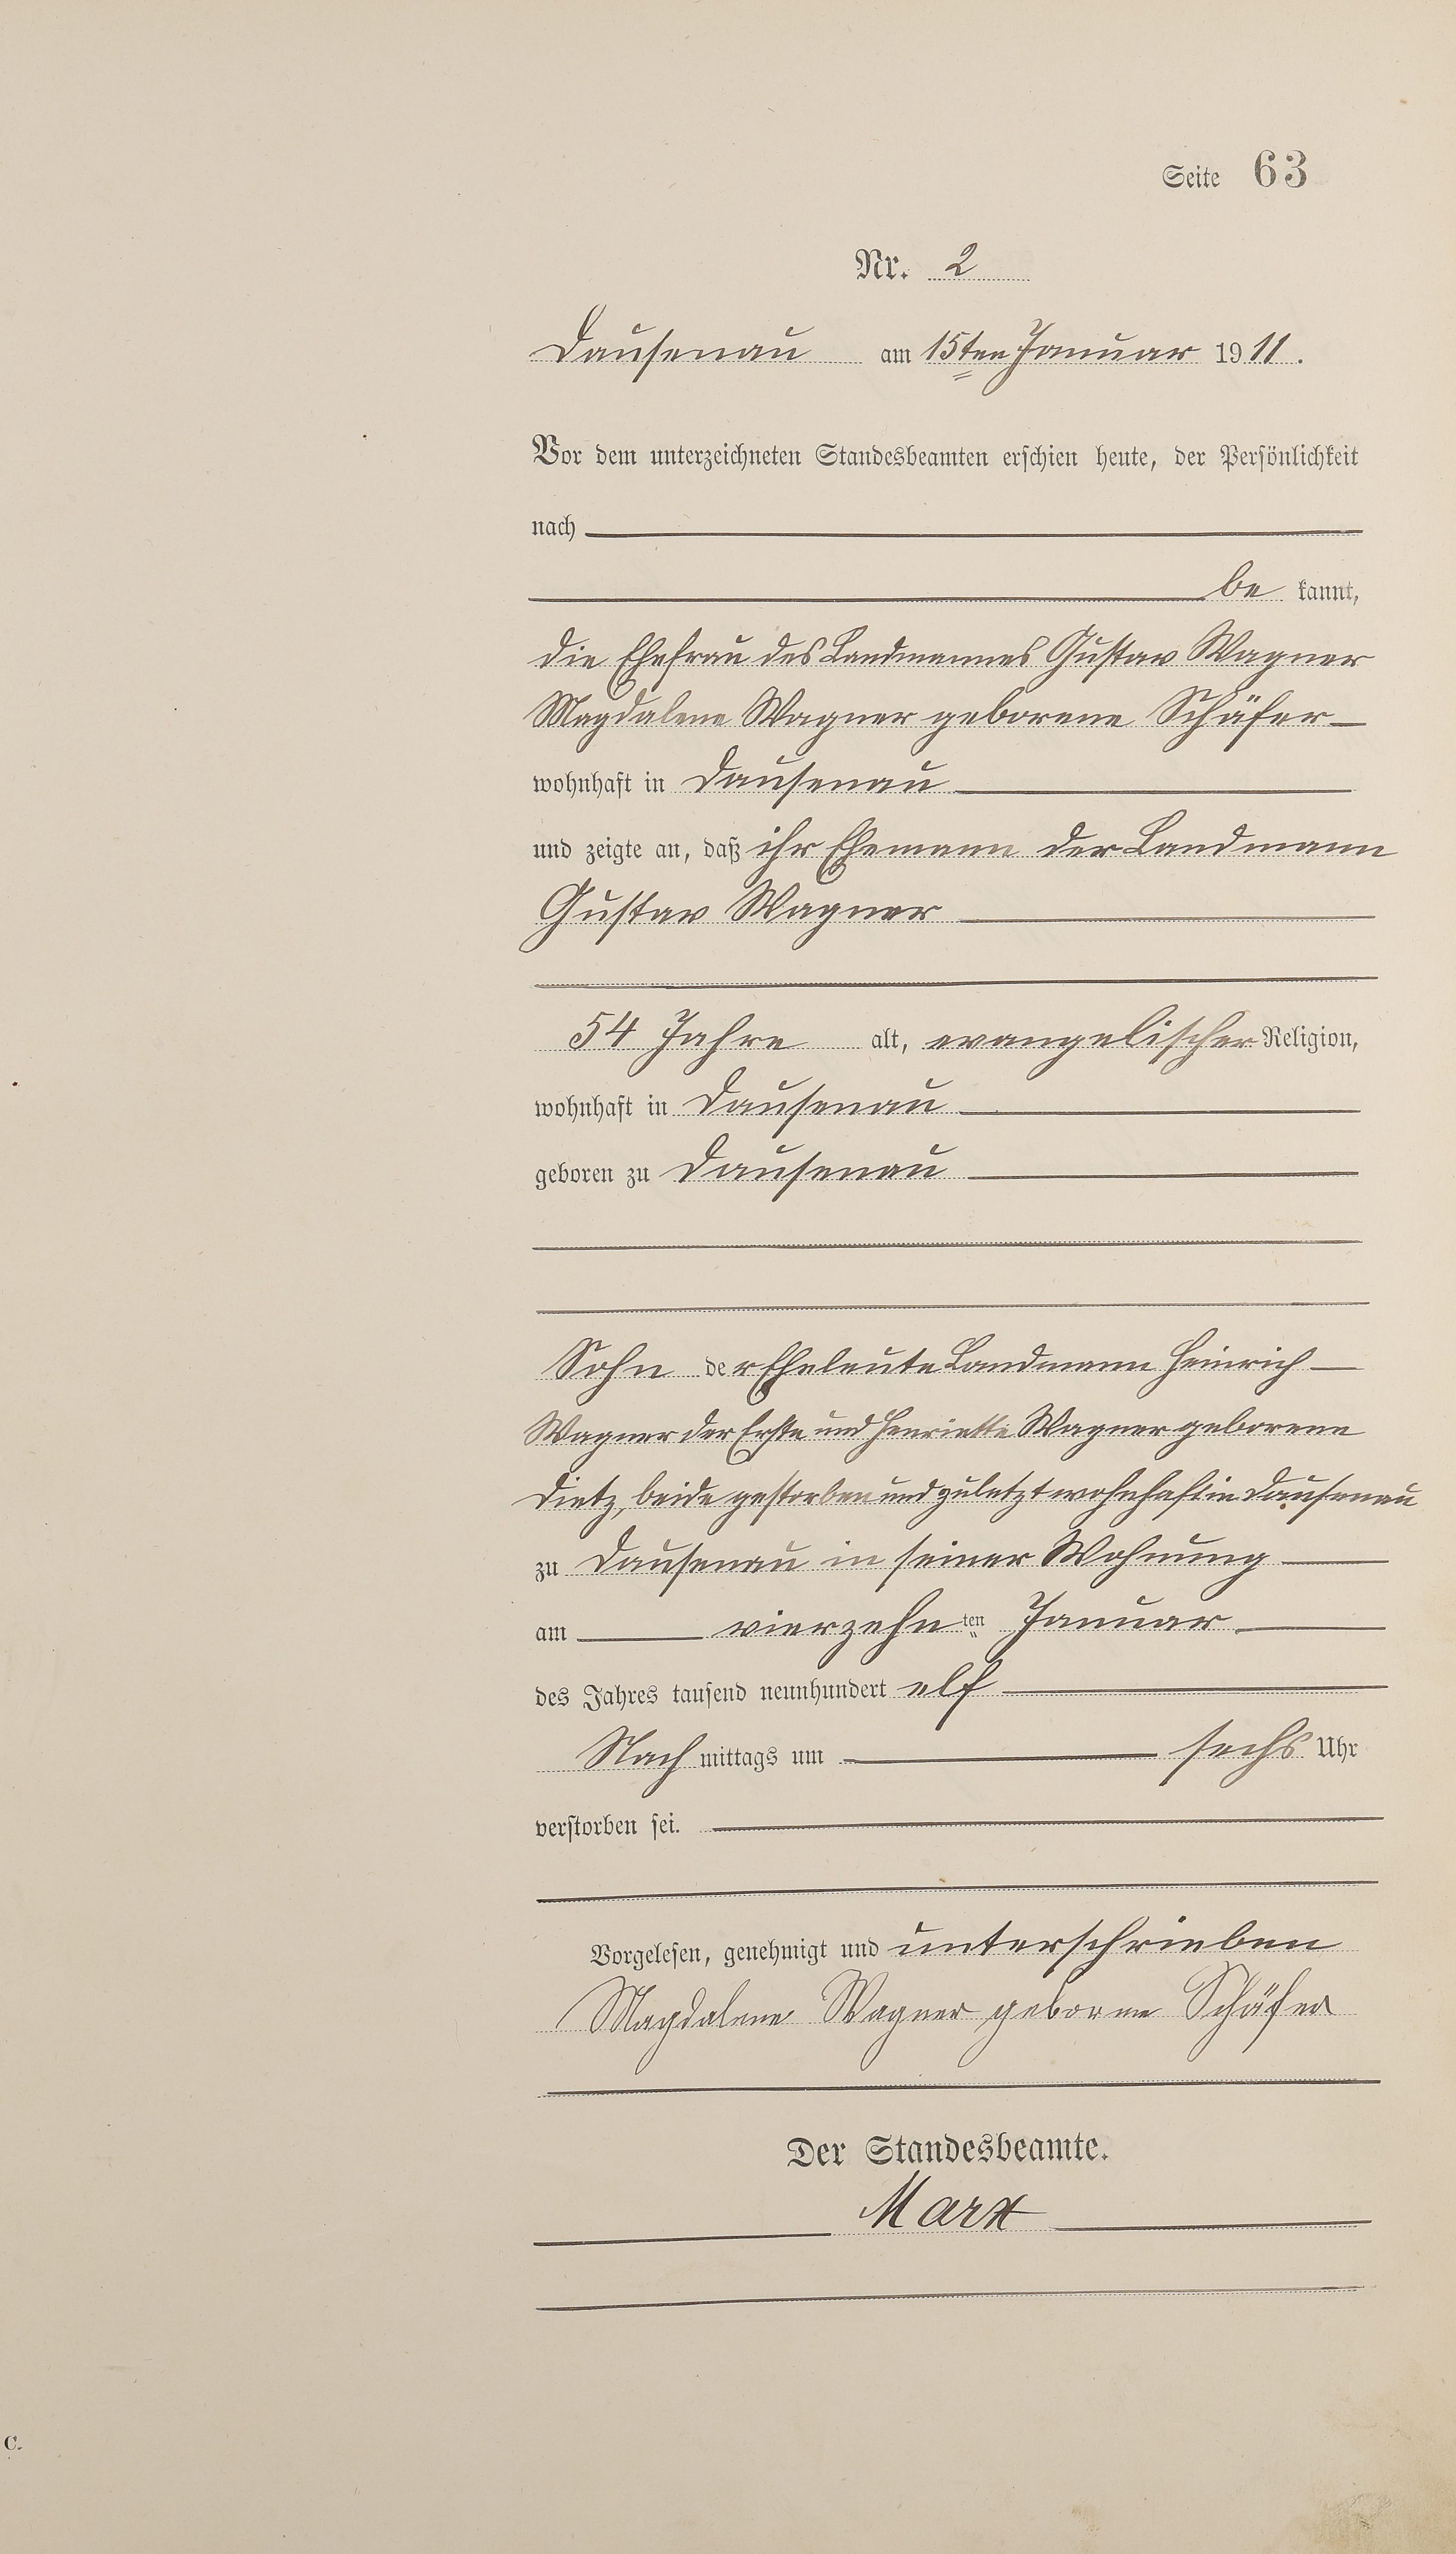 Seite 63
Nr. 2
Dausenau am 15ten Januar 1911.
Vor dem unterzeichneten Standesbeamten erschien heute, der Persönlichkeit
nach
be kannt,
die Ehefrau des Landmannes Gustav Wagner
Magdalene Wagner geborene Schäfer
wohnhaft in Dausenau
und zeigte an, daß ihr Ehemann der Landmann
Gustav Wagner
54 Jahre alt, evangelischer Religion,
wohnhaft in Dausenau
geboren zu Dausenau
Sohn der Eheleute Landmann Heinrich
Wagner der Erste und Henriette Wagner geborene
Dietz, beide gestorben und zuletzt wohnhaft in Dausenau
zu Dausenau in seiner Wohnung
am vierzehnten Januar
des Jahres tausend neunhundert elf
Nach mittags um sechs Uhr
verstorben sei.
Vorgelesen, genehmigt und unterschrieben
Magdalene Wagner geborne Schäfer
Der Standesbeamte.
Marx
C.